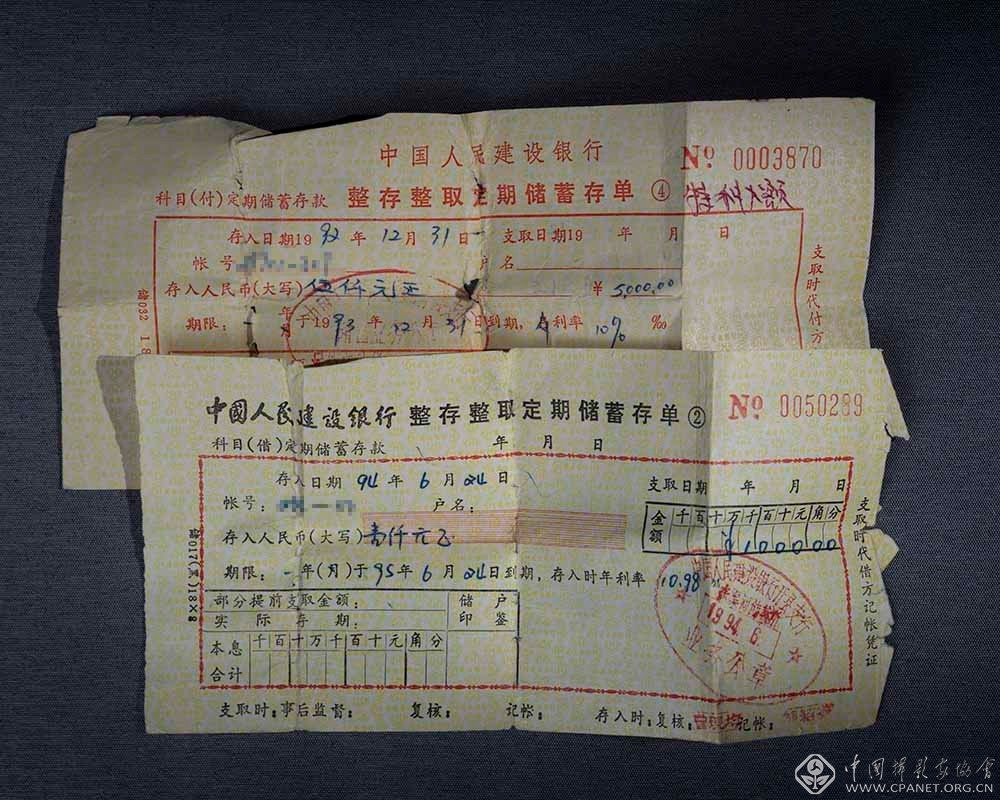 中国人民建设银行
Nº 0003870
科目(付)定期储蓄存款 整存整取定期储蓄存单④
存入日期19 92 年 12 月 31 日 支取日期19 年 月 日
帐号 户名
存入人民币(大写) 伍仟元正 ¥ 5,000.00
期限: 年 月于19 93 年 12 月 31 日到期, 利率 10% ‰
支取时代付方
储032 18
中國人民建设银行 整存整取定期储蓄存单②
Nº 0050289
科目(借)定期储蓄存款 年 月 日
存入日期 94 年 6 月 24 日 支取日期 年 月 日
帐号: 户名:
金额 千百十万千百十元角分
存入人民币(大写) 壹仟元正 ¥100000
期限: 一年(月)于 95 年 6 月 24 日到期,存入时年利率 10.98
部分提前支取金额: 储户
实际存期: 印鉴
本息 千百十万千百十元角分
合计
1994.6
业务公章
支取时:事后监督: 复核: 记帐: 存入时:复核: 记帐:
支取时代借方记帐凭证
储017(黑)18×8
中国摄影家协会
WWW.CPANET.ORG.CN